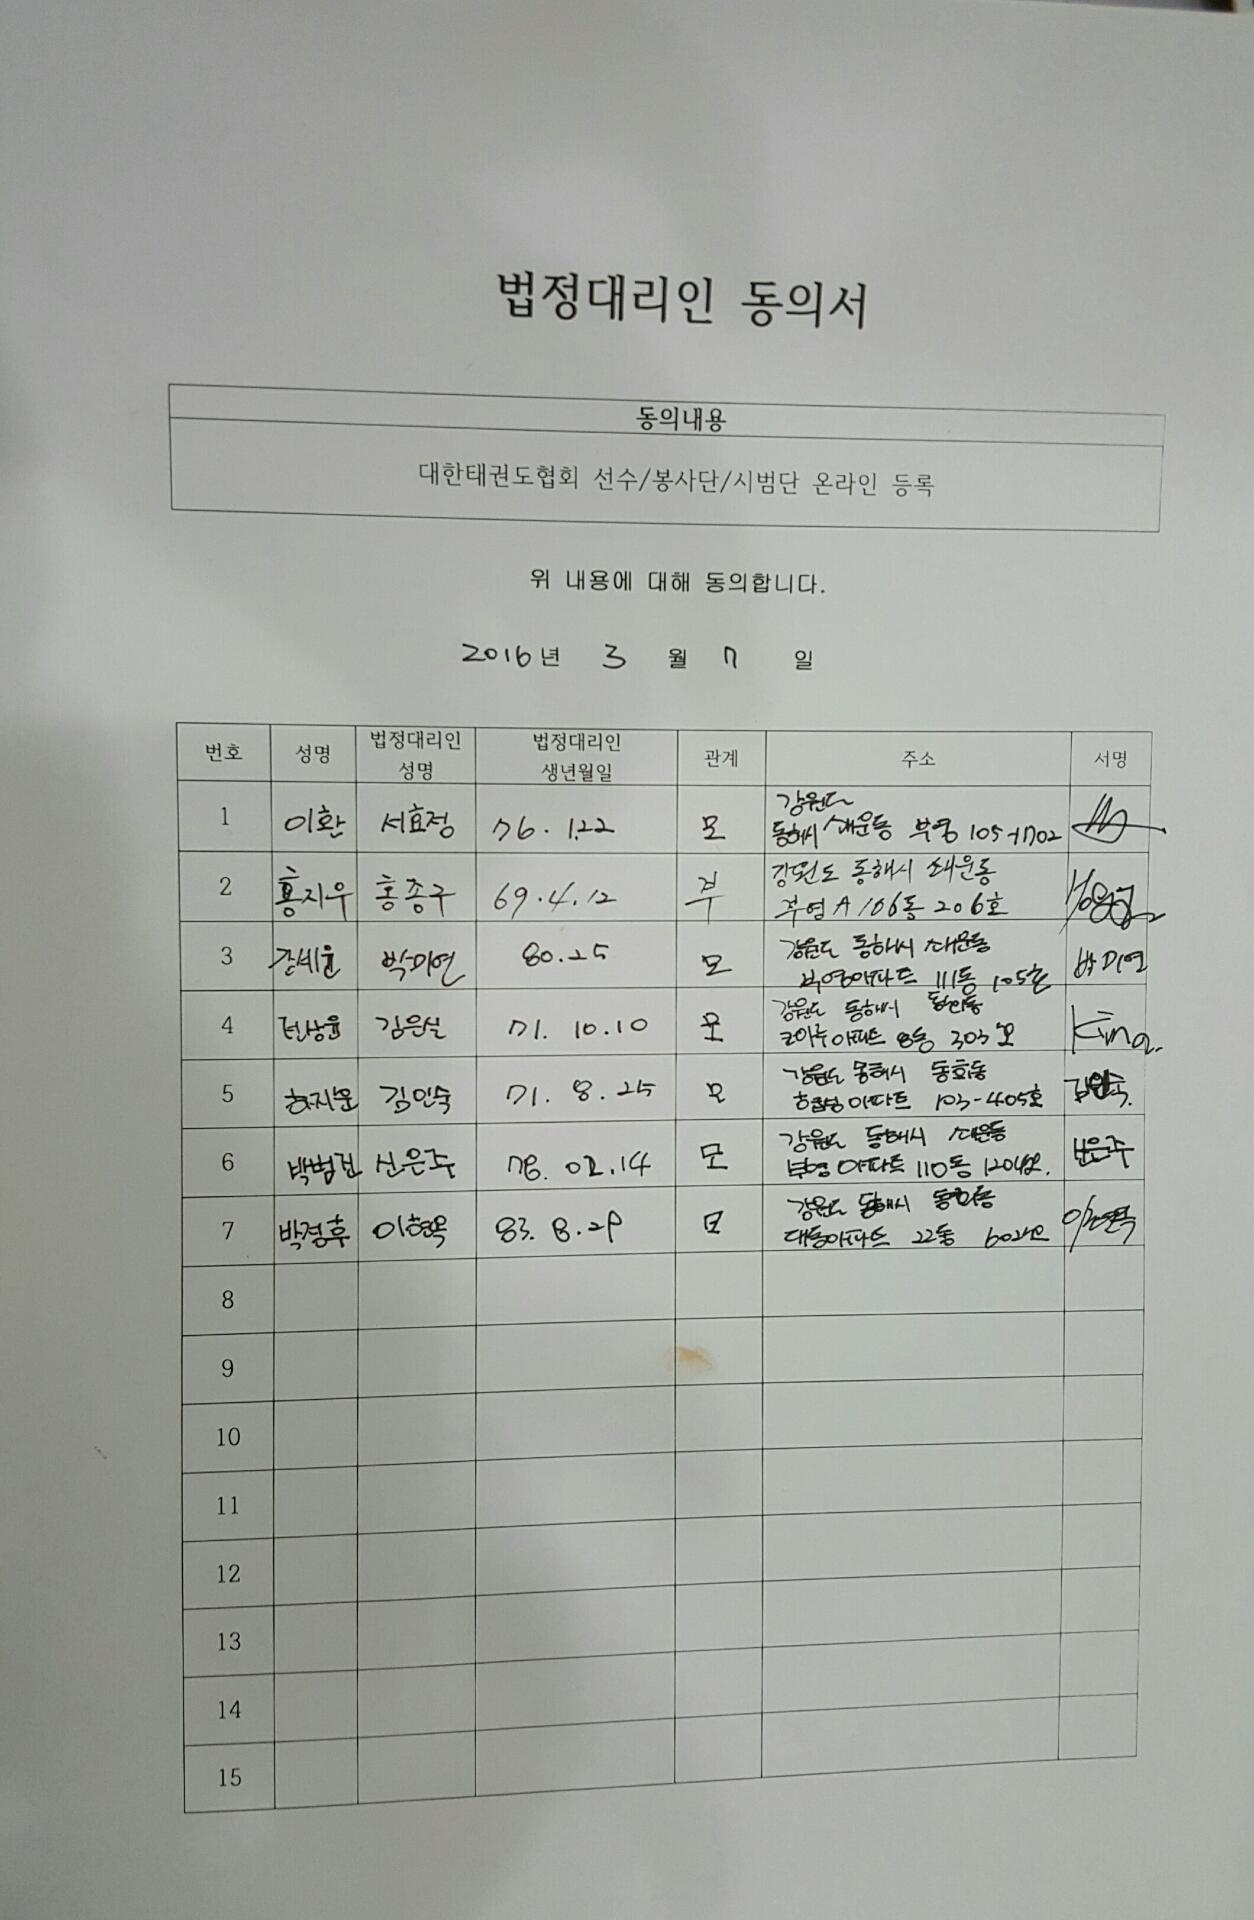 법정대리인 동의서
동의내용
대한태권도협회 선수/봉사단/시범단 온라인 등록
위 내용에 대해 동의합니다.
2016년 3 월 7 일
번호 성명 법정대리인 성명 법정대리인 생년월일 관계 주소 서명
1 이환 서효정 76. 1.22 모 강원도
동해시 쇄운동 부영 105-1702
2 홍지우 홍종구 69.4.12 부 강원도 동해시 쇄운동
부영A 106동 206호
3 박미연 80.25 모 강원도 동해시 쇄운동
부영아파트 111동 105호 박미연
4 김은실 71. 10.10 모 강원도 동해시
아파트 8동 303호 Kim
5 김인숙 71. 8.25 모 강원도 동해시 동회동
아파트 103-405호 김인숙
6 박범진 신은주 78. 02.14 모 강원도 동해시 쇄운동
부영아파트 110동 1204호 신은주
7 박정후 이현옥 83. 8.29 모 강원도 동해시
대동아파트 22동 602호 이현옥
8
9
10
11
12
13
14
15